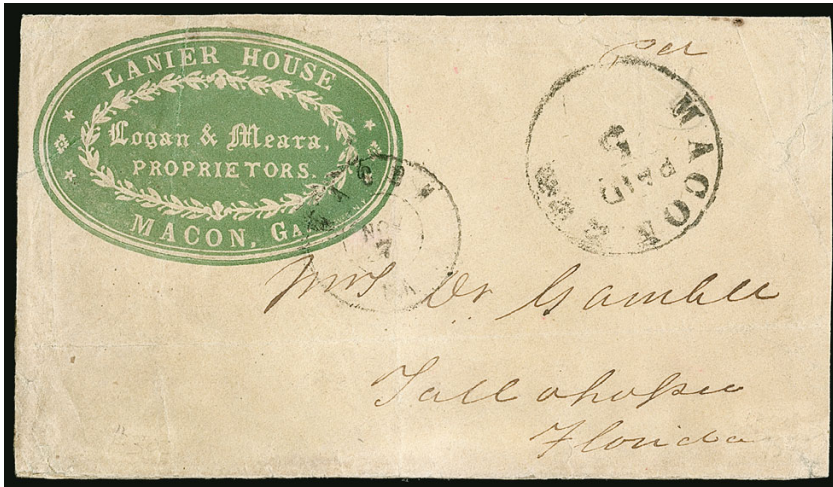 LANIER HOUSE
Logan & Meara,
PROPRIETORS.
MACON, GA.
MACON
PAID
5
MACON
NOV
7
GA
Mrs Dr Gamble
Tallahassee
Florida